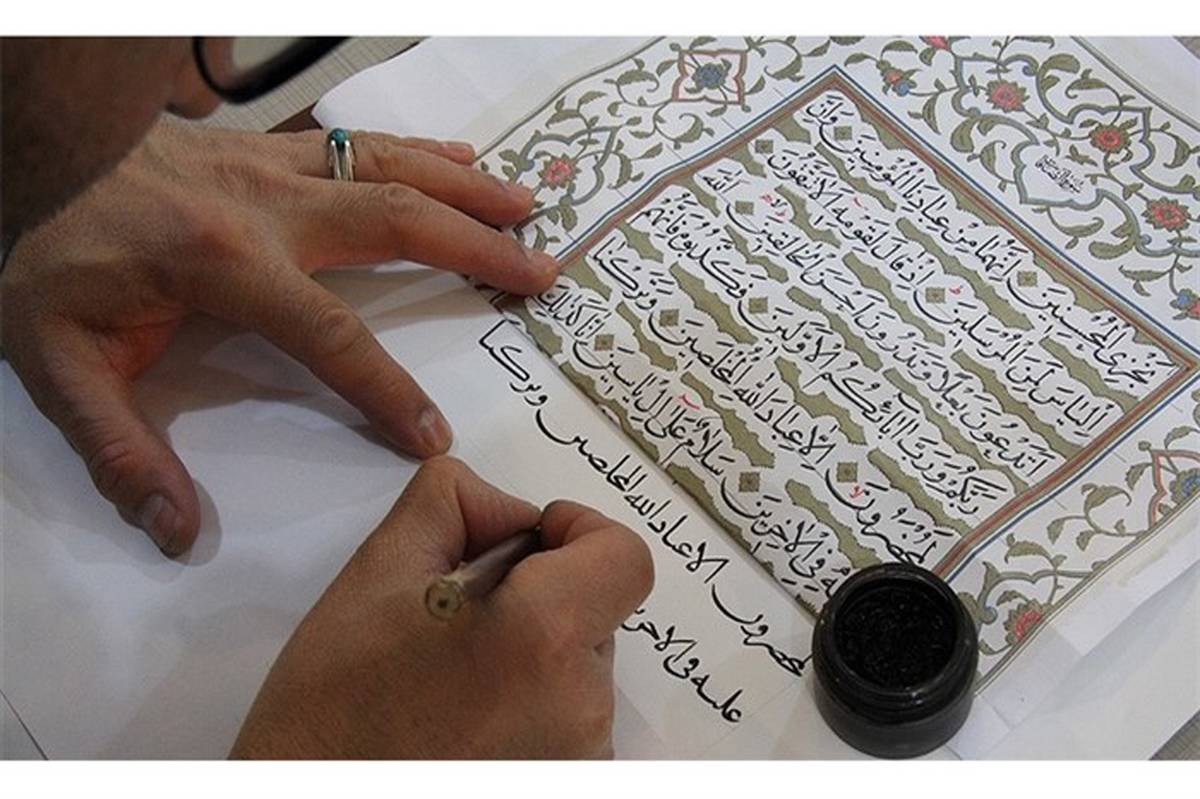 سورة الصافات
نَجْزِي الْمُحْسِنِينَ اِنَّهُمَا مِنْ عِبَادِنَا الْمُؤْمِنِينَ وَاِنَّ
اِلْيَاسَ لَمِنَ الْمُرْسَلِينَ اِذْ قَالَ لِقَوْمِهِ اَلَا تَتَّقُونَ
اَتَدْعُونَ بَعْلًا وَتَذَرُونَ اَحْسَنَ الْخَالِقِينَ اَللّٰهَ
رَبَّكُمْ وَرَبَّ اٰبَائِكُمُ الْاَوَّلِينَ فَكَذَّبُوهُ فَاِنَّهُمْ
لَمُحْضَرُونَ اِلَّا عِبَادَ اللّٰهِ الْمُخْلَصِينَ وَتَرَكْنَا
عَلَيْهِ فِي الْاٰخِرِينَ سَلَامٌ عَلٰى اِلْ يَاسِينَ اِنَّا كَذٰلِكَ
لمحضرون الا عباد الله المخلصين وتركنا
عليه في الاخر